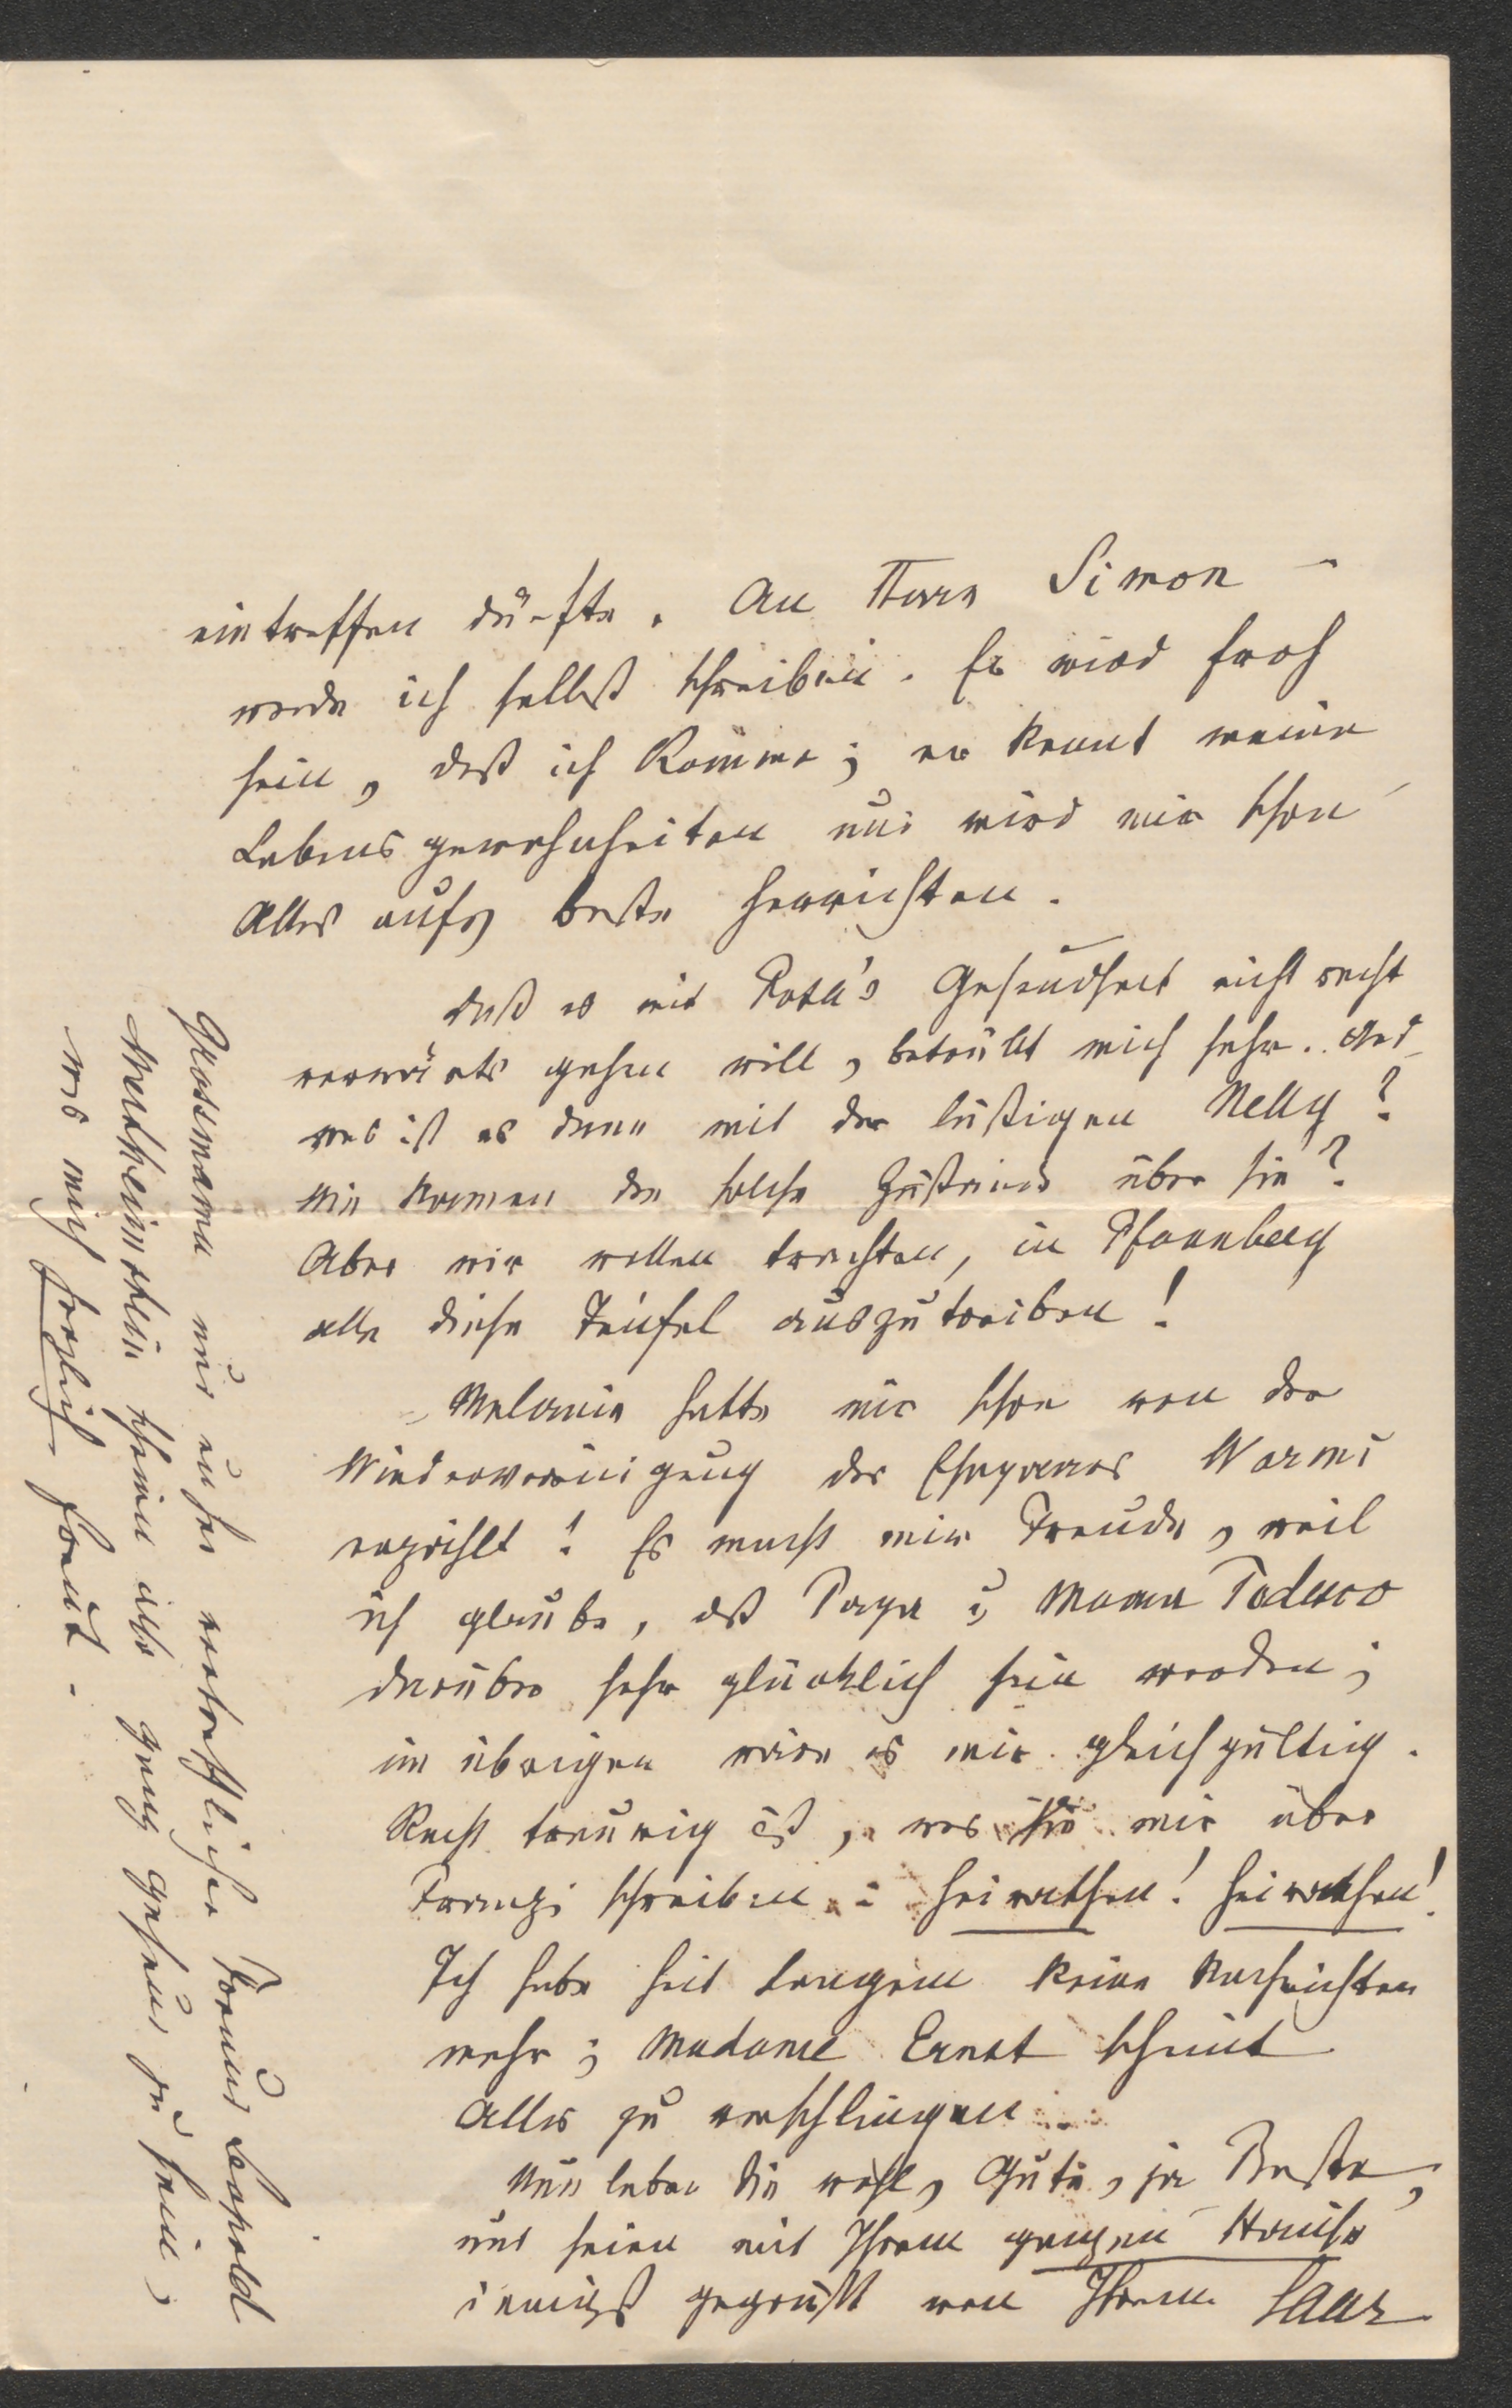 eintreffen dürfte. An Herrn Simon
werde ich selbst schreiben. Er wird froh
sein, daß ich komme; er kennt meine
Lebensgewohnheiten und wird mir schon
Alles aufs beste herrichten.
Daß es mit Rosa's Gesundheit nicht recht
vorwärts gehen will, betrübt mich sehr. Und
was ist es denn mit der lustigen Nelly?
Wie kommen den solche Zustände über sie?
Aber wir wollen trachten, in Pfannberg
alle diese Teufel auszutreiben!
Melanie hatte mir schon von der
Wiedervereinigung des Ehepaares Warms
erzählt! Es macht mir Freude, weil
ich glaube, daß Papa u Mama Todesco
darüber sehr glücklich sein werden;
im übrigen wäre es mir gleichgültig.
Recht traurig ist, was Sie mir über
Franzi schreiben: heirathen! heirathen!
Ich habe seit langem keine Nachrichten
mehr; Madame Ernst scheint
Alles zu verschlingen
Nun leben Sie wohl, Gute, ja Beste,
und seien mit Ihrem ganzen Hause
innigst gegrüßt von Ihrem Saar
Grossmama und unser vortrefflicher Freund Leopold
Wertheimstein scheinen also ganz gesund zu sein,
was mich herzlich freut.